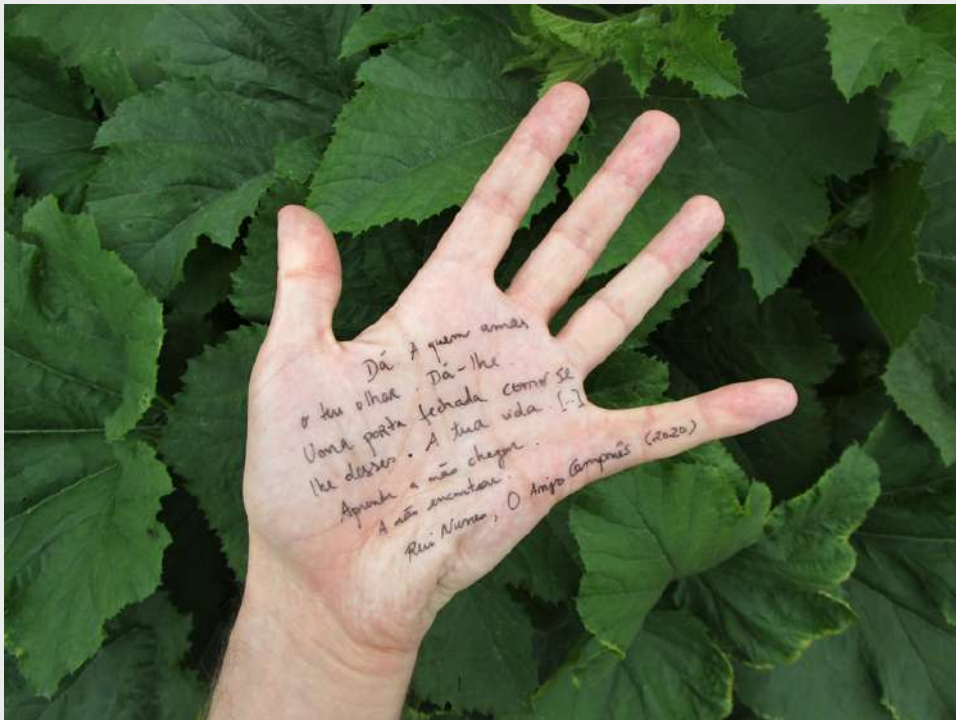 Dá. A quem amas
o teu olhar. Dá-lhe.
Uma porta fechada como se
lhe desses. A tua vida. [...]
Aprende a não chegar.
A não encontrar.
Rui Nunes, O Anjo Camponês (2020)